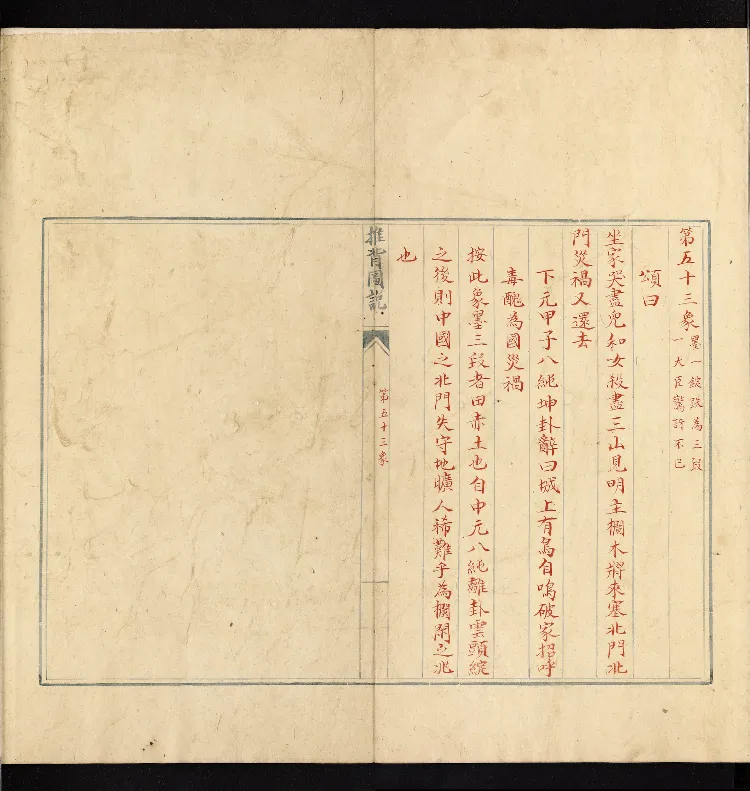 第五十三象墨一錠跌為三段
一大臣驚訝不已
頌曰
坐家哭盡兒和女殺盡三山見明主欄木將來塞北門北
門災禍又還去
下元甲子八純坤卦辭曰城上有烏自鳴破家招呼
毒醜為國災禍
按此象墨三段者田赤土也自中元八純離卦雲頭綻
之後則中國之北門失守地曠人稀難乎為欄閑之兆
也
推背圖說
第五十三象